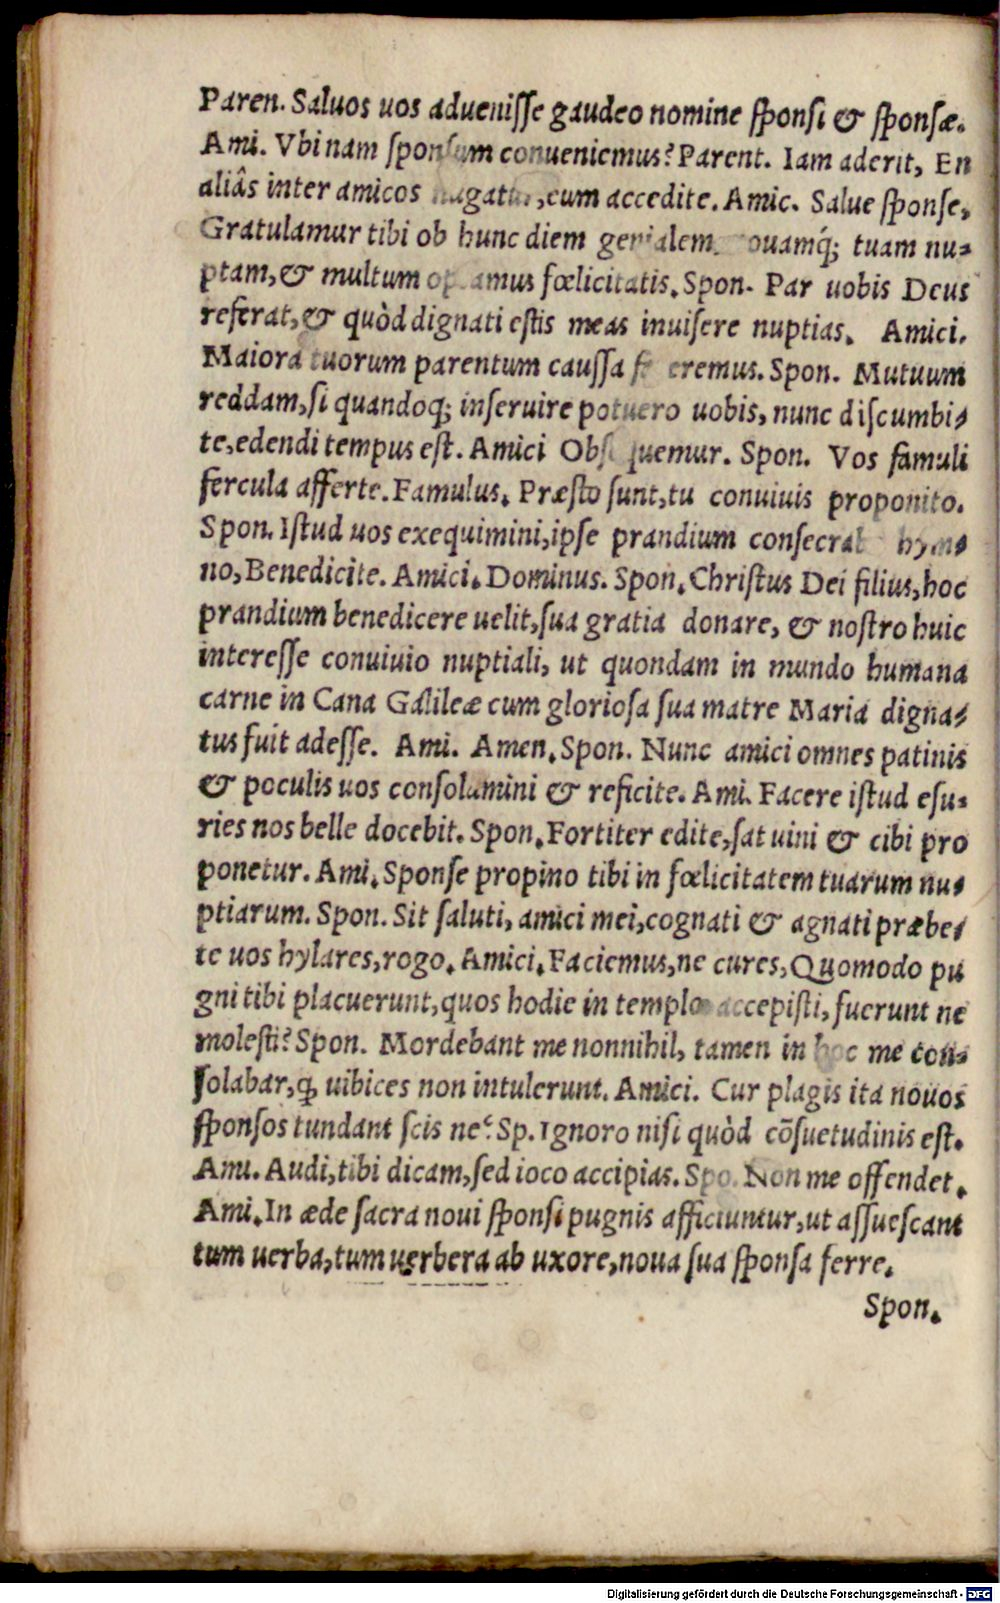 Paren. Saluos uos aduenisse gaudeo nomine sponsi & sponsæ.
Ami. Vbi nam sponsum conueniemus? Parent. Iam aderit, En
aliâs inter amicos uagatur, eum accedite. Amic. Salue sponse,
Gratulamur tibi ob hunc diem genialem, nouamq́; tuam nu-
ptam, & multum optamus fœlicitatis. Spon. Par uobis Deus
referat, & quòd dignati estis meas inuisere nuptias. Amici.
Maiora tuorum parentum caussa faceremus. Spon. Mutuum
reddam, si quandoq; inseruire potuero uobis, nunc discumbi-
te, edendi tempus est. Amici Obsequemur. Spon. Vos famuli
fercula afferte. Famulus. Præsto sunt, tu conuiuis proponito.
Spon. Istud uos exequimini, ipse prandium consecrabo hym-
no, Benedicite. Amici. Dominus. Spon. Christus Dei filius, hoc
prandium benedicere uelit, sua gratia donare, & nostro huic
interesse conuiuio nuptiali, ut quondam in mundo humana
carne in Cana Galileæ cum gloriosa sua matre Maria digna-
tus fuit adesse. Ami. Amen. Spon. Nunc amici omnes patinis
& poculis uos consolamini & reficite. Ami. Facere istud esu-
ries nos belle docebit. Spon. Fortiter edite, sat uini & cibi pro
ponetur. Ami. Sponse propino tibi in fœlicitatem tuarum nu-
ptiarum. Spon. Sit saluti, amici mei, cognati & agnati præbe-
te uos hylares, rogo. Amici. Faciemus, ne cures, Quomodo pu
gni tibi placuerunt, quos hodie in templo accepisti, fuerunt ne
molesti? Spon. Mordebant me nonnihil, tamen in hoc me con-
solabar, ꝙ uibices non intulerunt. Amici. Cur plagis ita nouos
sponsos tundant scis ne? Sp. Ignoro nisi quòd cõsuetudinis est.
Ami. Audi, tibi dicam, sed ioco accipias. Spo. Non me offendet.
Ami. In æde sacra noui sponsi pugnis afficiuntur, ut assuescant
tum uerba, tum uerbera ab uxore, noua sua sponsa ferre.
Spon.
Digitalisierung gefördert durch die Deutsche Forschungsgemeinschaft - DFG